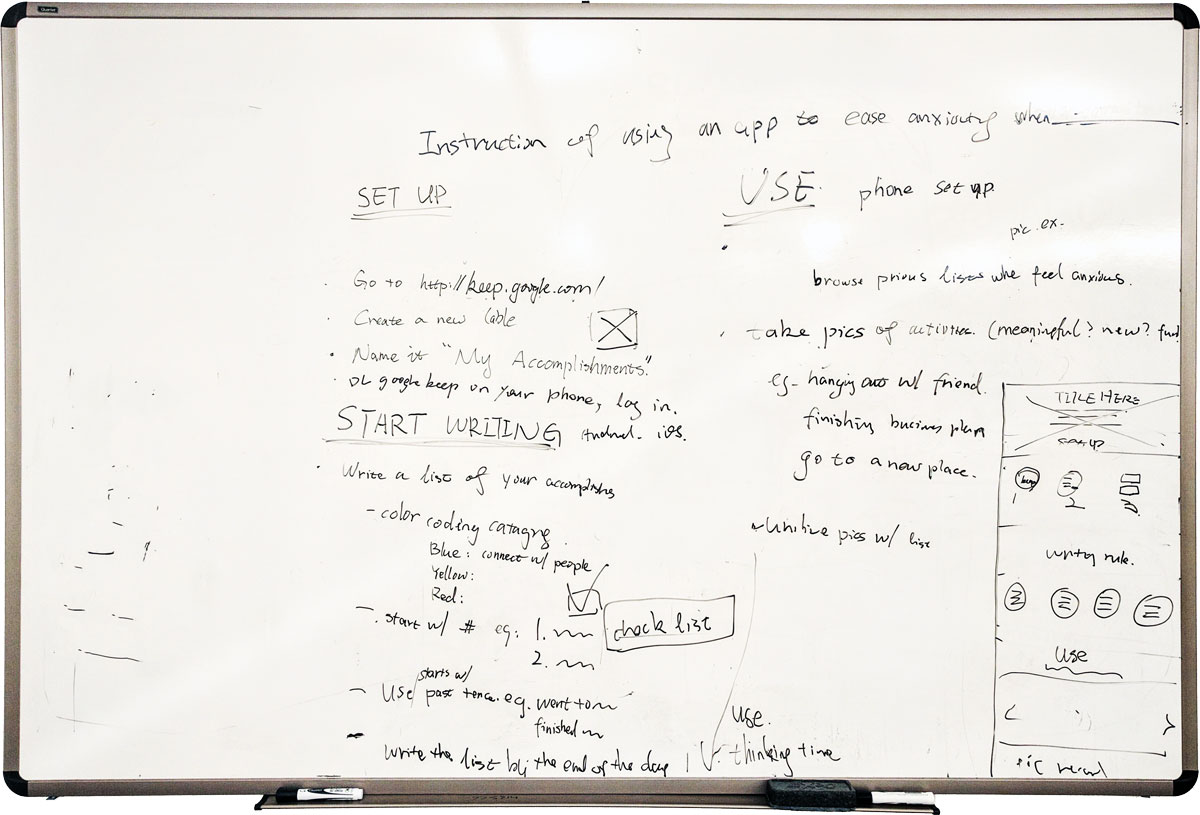 Quartet
Instruction of using an app to ease anxiouty when
SET UP
· Go to http://keep.google.com/
· Create a new lable
· Name it "My Accomplishments".
· DL google keep on your phone, log in.
Android. iOS.
START WRITING
· Write a list of your accomplishs
- color coding catagry
Blue: connect w/ people
Yellow:
Red:
- start w/ # eg: 1.
2.
check list
- Use starts w/ past tence. eg. went to
finished
- write the list by the end of the day
USE. phone set up.
pic. ex.
browse privous lists whe feel anxious.
· take pics of activities. (meaningful? new? fun?
eg- hanging out w/ friend.
finishing bucines plan
go to a new place.
pics w/ list
use.
thinking time
TITLE HERE
set up
1 2 3
writing rule.
Use
< >
pic